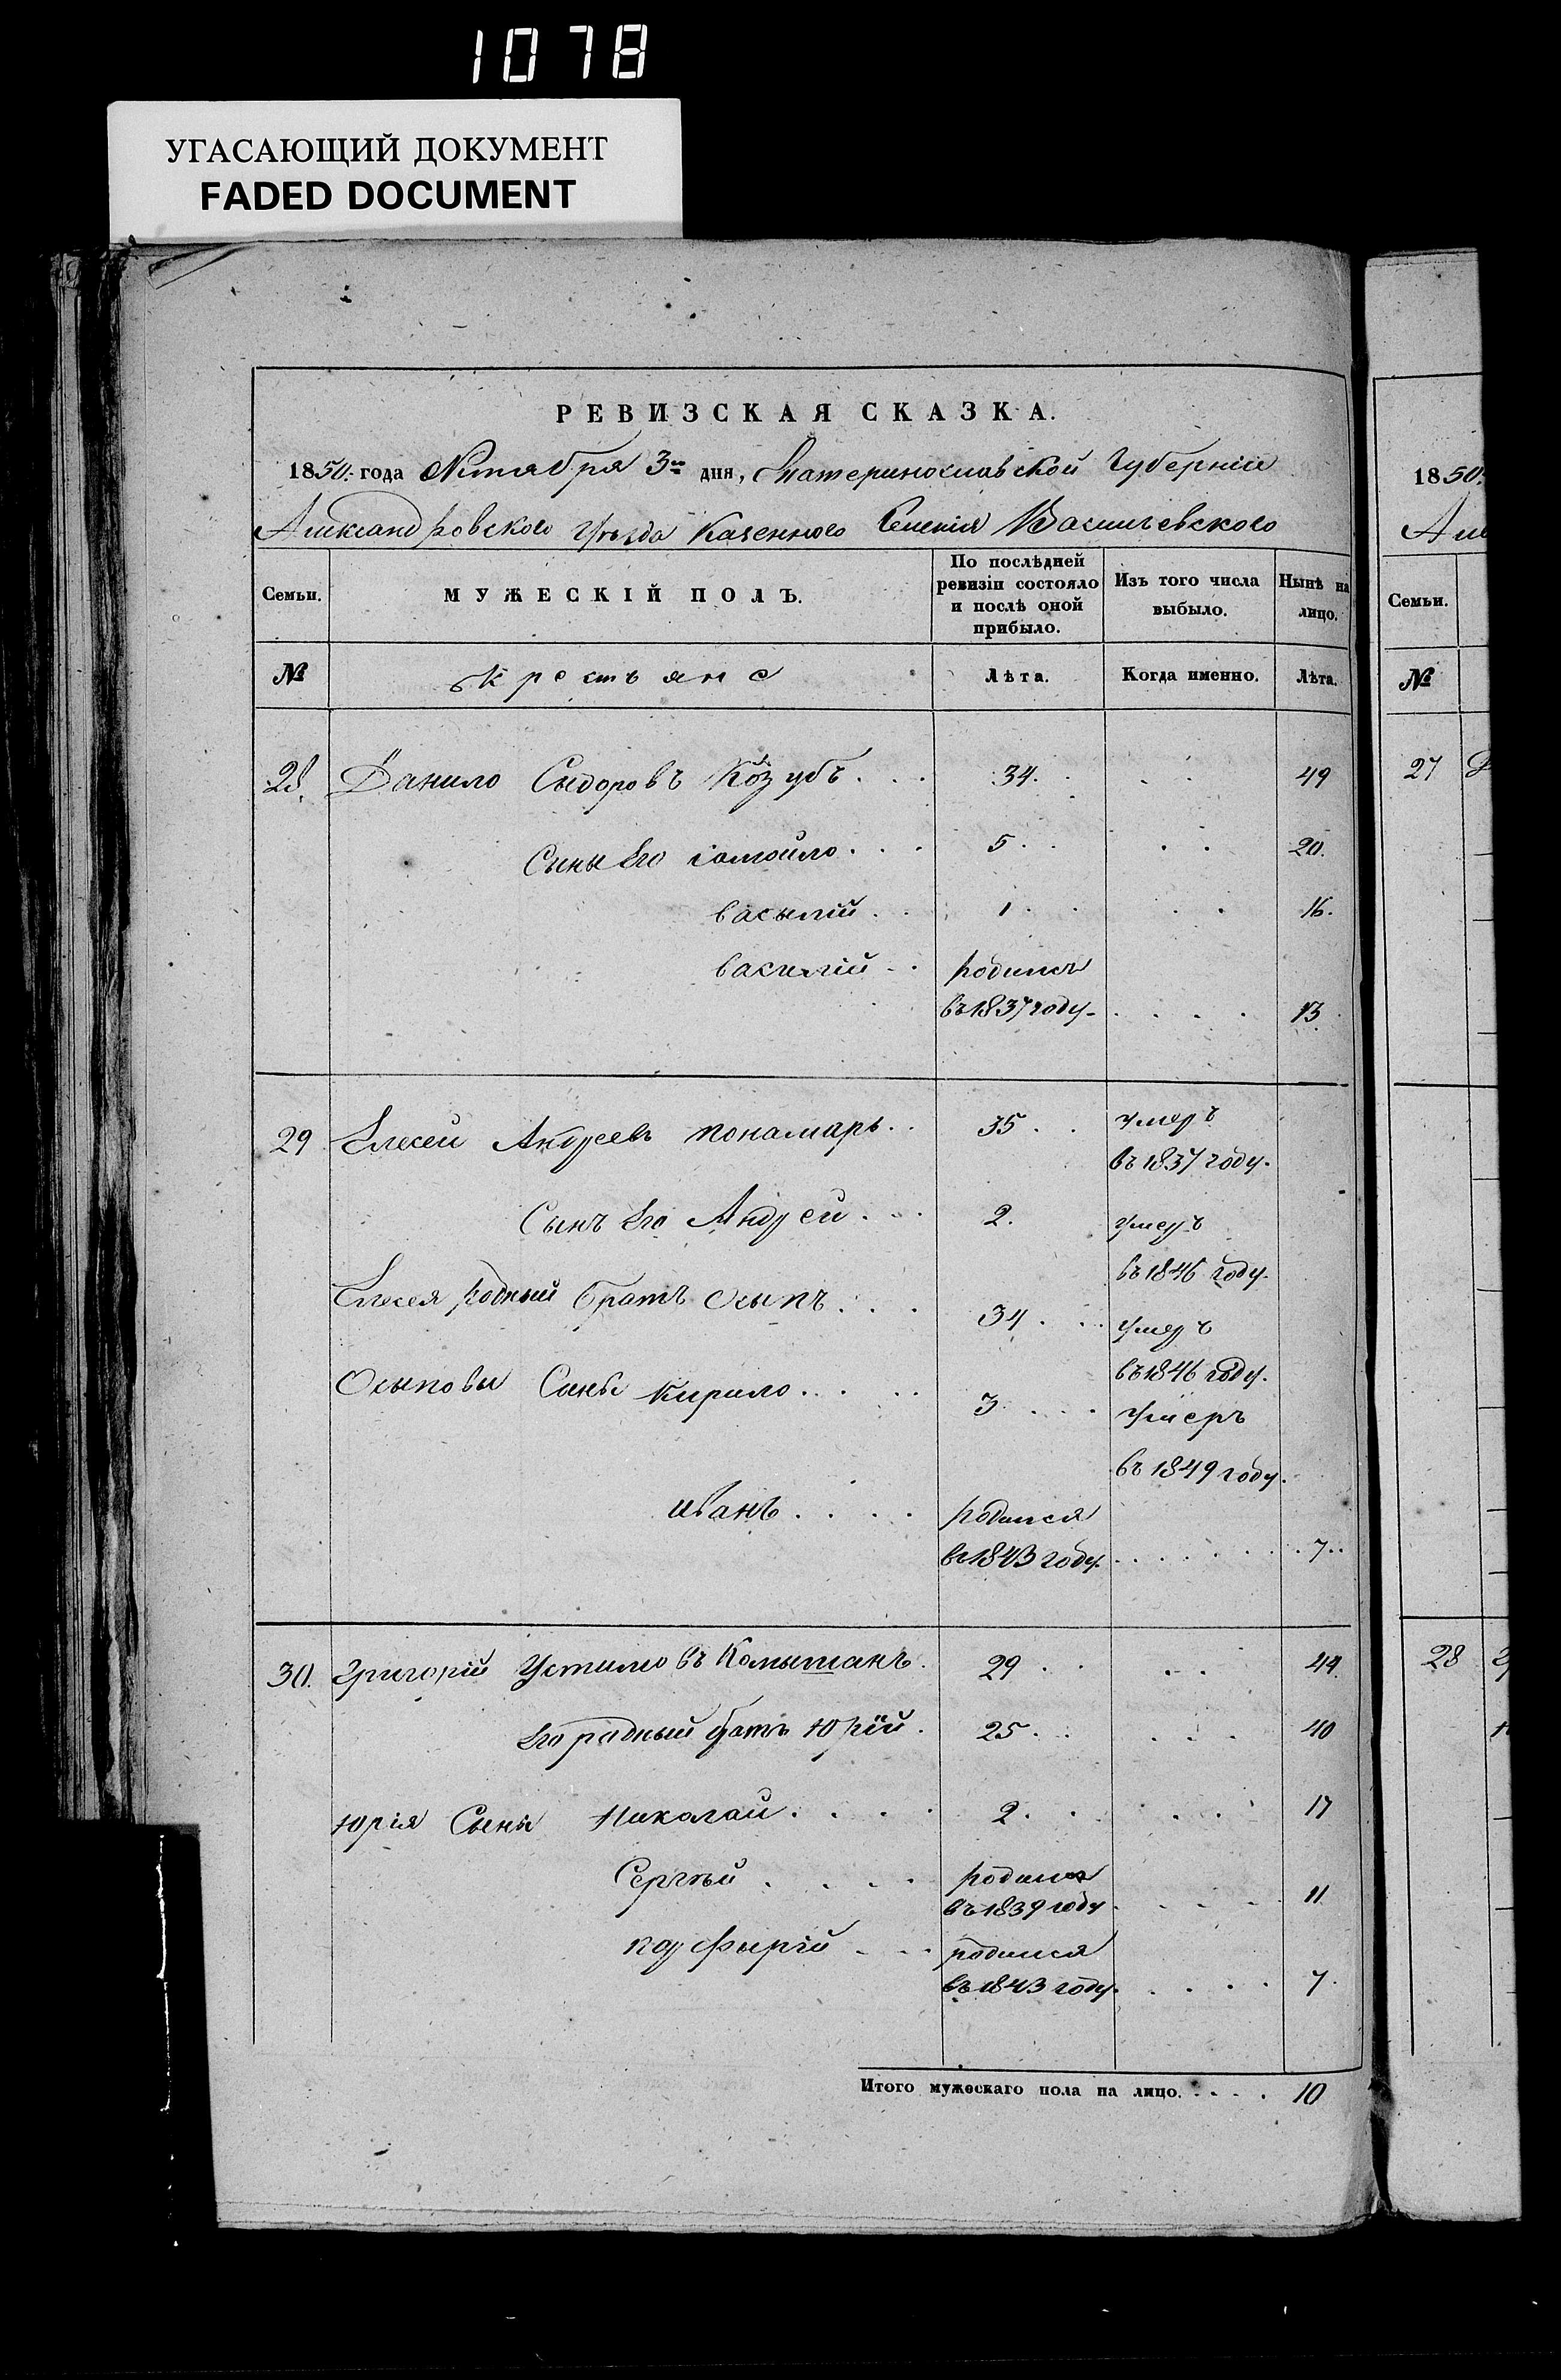 1078
УГАСАЮЩИЙ ДОКУМЕНТ
FADED DOCUMENT
РЕВИЗСКАЯ СКАЗКА.
1850: года Октября 3го дня, Екатеринославской Губерніи
Александровского Уѣзда Казенного Селенія
По послѣдней ревизіи состояло и послѣ оной прибыло.
Семьи. МУЖЕСКІЙ ПОЛЪ. Изъ того числа выбыло. Нынѣ на лицо.
№ Крестьяне Лѣта. Когда именно. Лѣта.
28. Данило Сыдоровъ Козубъ . . . 34. . . . 49
Сыны Его Самойло . . . 5 . . . . 20.
Васылій . . 1 . . . . 16.
Василій . . родился
въ 1837 году . . . . 13
29 Елесей Андреевъ Пономарь . . 35 . . умеръ
въ 1837 году.
Сынъ Его Андрей . . . 2. умеръ
въ 1846 году.
Елесея родный братъ Осыпъ . . . 34 . . . умеръ
въ 1846 году.
Осыповы Сыны Кирило . . . . 3 . . . умеръ
въ 1849 году.
Иванъ . . . . родился
въ 1843 году . . . . . . . 7 . .
30. Григорій Устимовъ Комышанъ . 29 . . . . 44
Его родный братъ Юрій . 25 . . . . . 40
Юрія Сыны Николай . . . . 2 . . . . . 17
Сергѣй . . . . родился
въ 1839 году . . . . 11
Порфырій . . . родился
въ 1843 году . . . . . 7
Итого мужескаго пола на лицо. . . . . 10
1850:
Семьи.
№
27
28